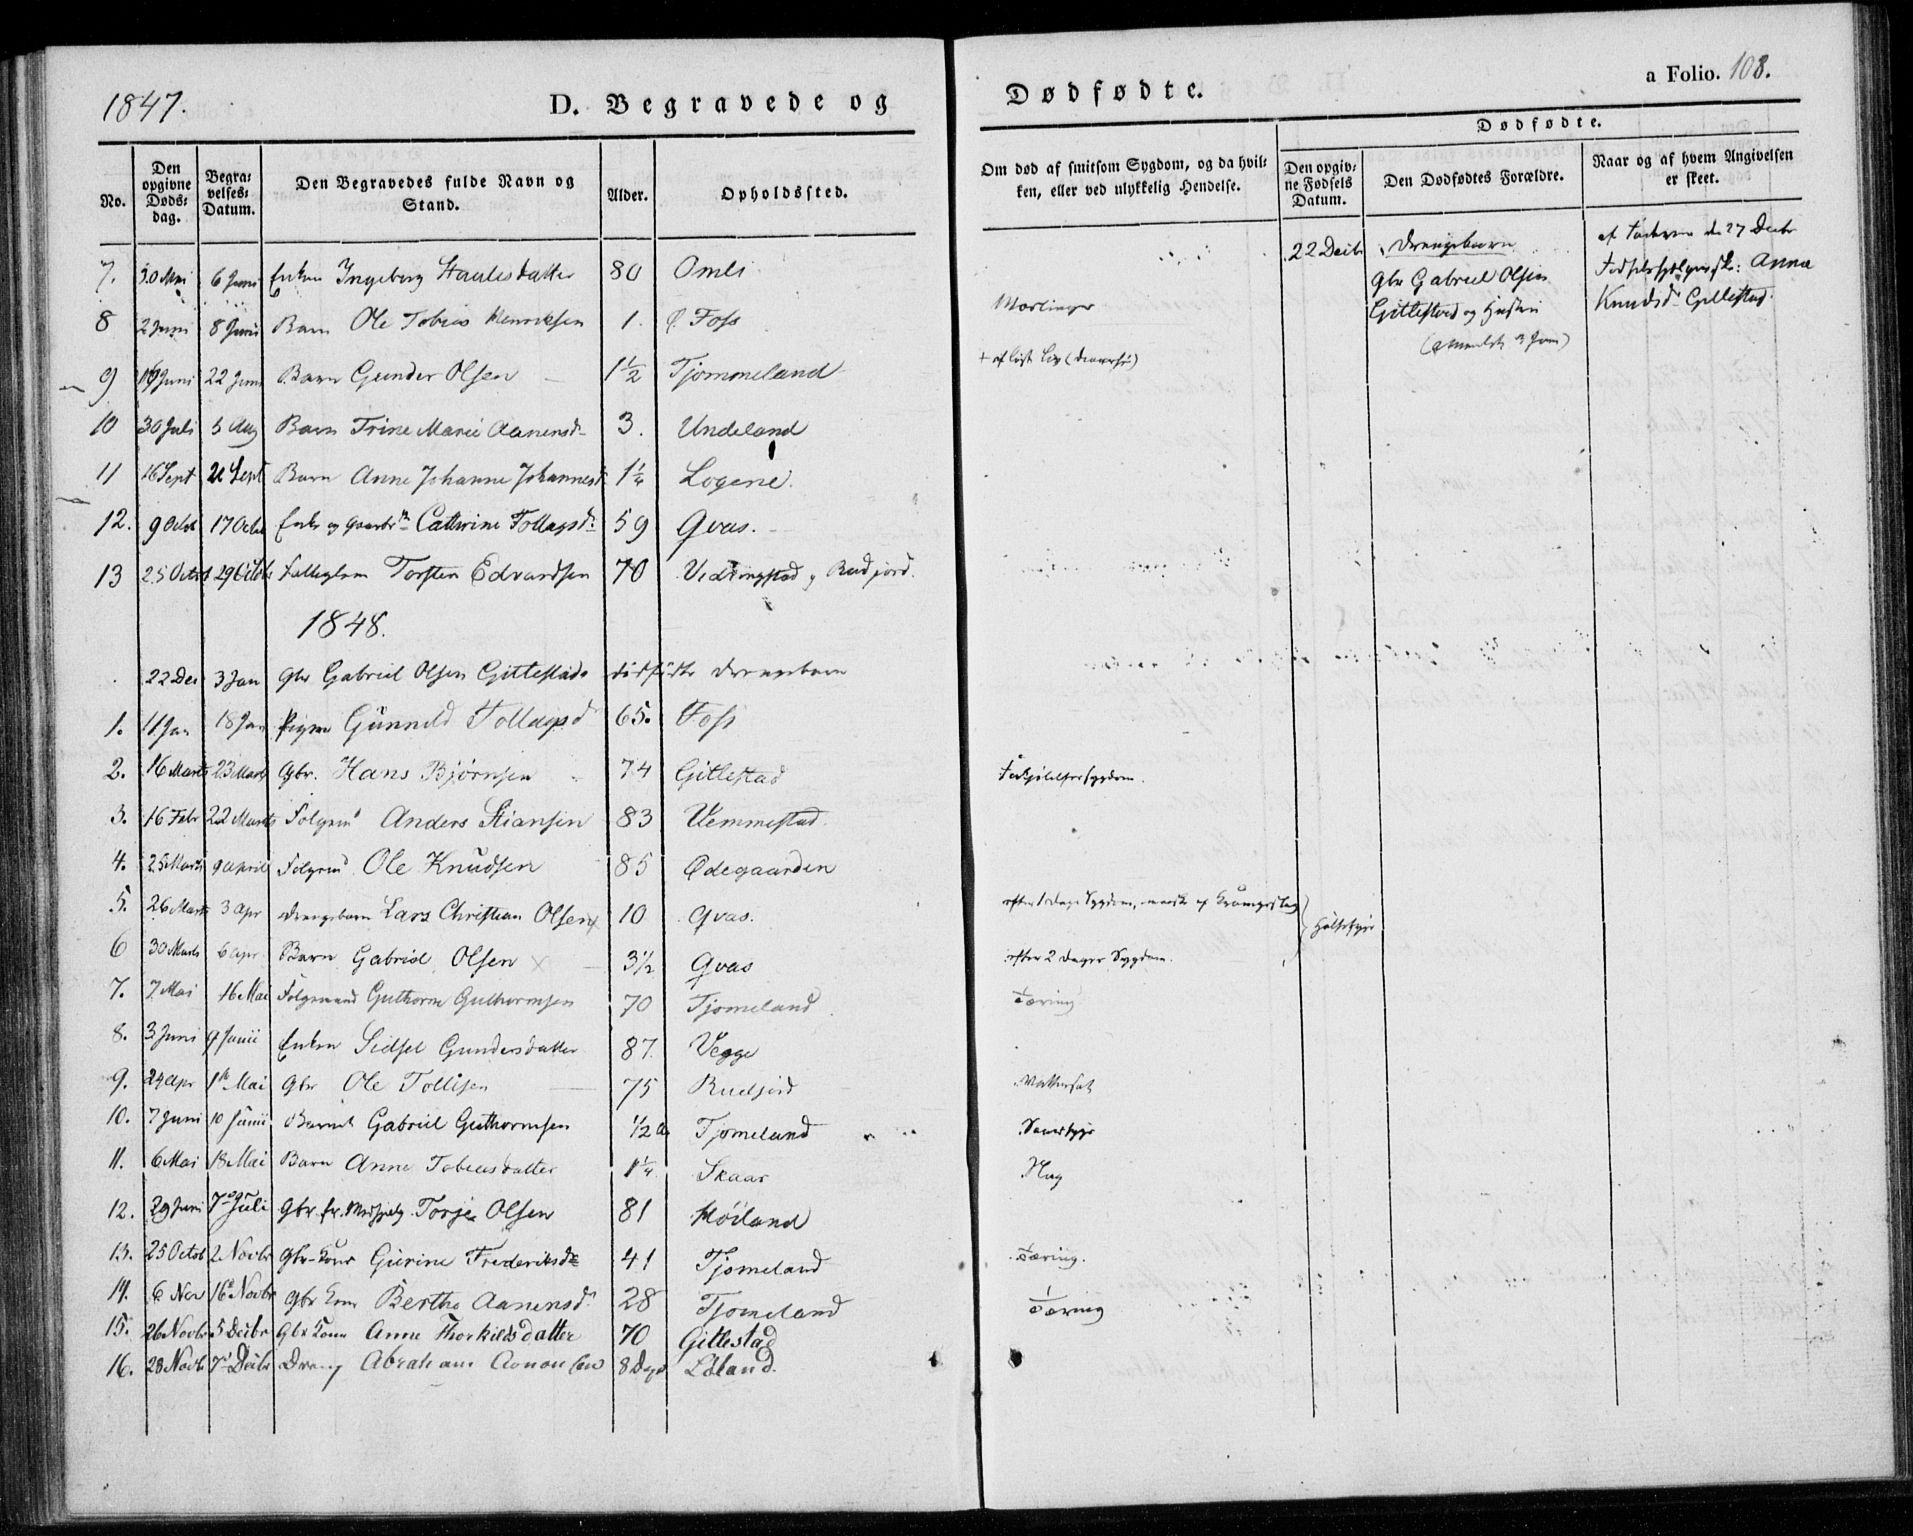 1847. D. Begravede og Dødfødte. a Folio. 108.
Dødfødte.
No. | Den opgivne Døds-dag. | Begra-velses-Datum. | Den Begravedes fulde Navn og Stand. | Alder. | Opholdssted. | Om død af smitsom Sygdom, og da hvil-ken, eller ved ulykkelig Hendelse. | Den opgiv-ne Fødsels Datum. | Den Dødfødtes Forældre. | Naar og af hvem Angivelsen er skeet.
7. 30 Mai 6 Juni Enken Ingeborg Staalesdatter 80 Omli
22 Decbr Drengebarn
Gbr Gabriel Olsen
Gitlestad og Hustru
af Faderen de 27 Decbr
Anna
Knudsd. Gitlestad.
8 2 Juni 8 Junii Barn Ole Tobias Henriksen 1. Ø. Foss Mæslinger
9 16 Juni 22 Juni Barn Gunder Olsen 1½ Tjommeland
10 30 Juli 5 Aug Barn Trine Marie Aanensd. 3. Undeland
11 16 Sept 21 Sept Barn Anne Johanne Johannesd 1¼ Logene.
12. 9 Octb 17 Octb Enke og Cathrine Tollagsd. 59 Qvas.
13 25 Octbr 29 Octbr Torsten Edvardsen 70 Rudjord.
1848.
22 Dec 3 Jan Gbr Gabriel Olsen Gitlestads dødfødte Drengebarn
1. 11 Jan 18 Jan Pigen Gunneld Tollagsd 65. Foss
2. 16 Marts 23 Marts Gbr. Hans Bjørnsen 74 Gitlestad Forkjølelsessygdom.
3. 16 Febr 22 Marts Folgem Anders Stiansen 83 Vemmestad
4. 25 Marts 9 April Folgem Ole Knudsen 85 Ødegaarden
5. 26 Marts 3 Apr Drengebarn Lars Christian Olsen x 10 Qvas. efter 1 Dags Sygdom,
6 30 Marts 6 Apr Barn Gabriel Olsen x 3½ Qvas efter 2 Dages Sygdom. Halssyge
7. 7 Mai 16 Mai Folgemand Guthorm Guthormsen 70 Tjomeland Tæring
8. 3 Juni 9 Junii Enken Sidsel Gundersdatter 87. Vegge
9. 24 Apr 1st Mai Gbr Ole Tollisen 75 Rudjord Vattersot
10. 7 Juni 10 Junii Barnet Gabriel Guthormsen ½ A Tjomeland
11. 6 Mai 18 Mai Barn Anne Tobiasdatter 1¼ Skaar
12. 29 Juni 7de Juli Gbr. Torje Olsen 81 Høiland
13. 25 Octob 2. Novbr Gbr-Kone Gurine Frederiksd. 41 Tjomeland Tæring.
14. 6 Nov 16 Novbr Gbr Kone Berthe Aanensd. 28 Tjomeland Tæring
15. 26 Novbr 5 Decbr Gbr Kone Anne Thorkildsdatter 70 Gitlestad
16. 28 Novb 7 Decbr Dreng Abraham 8 Dage Løland.